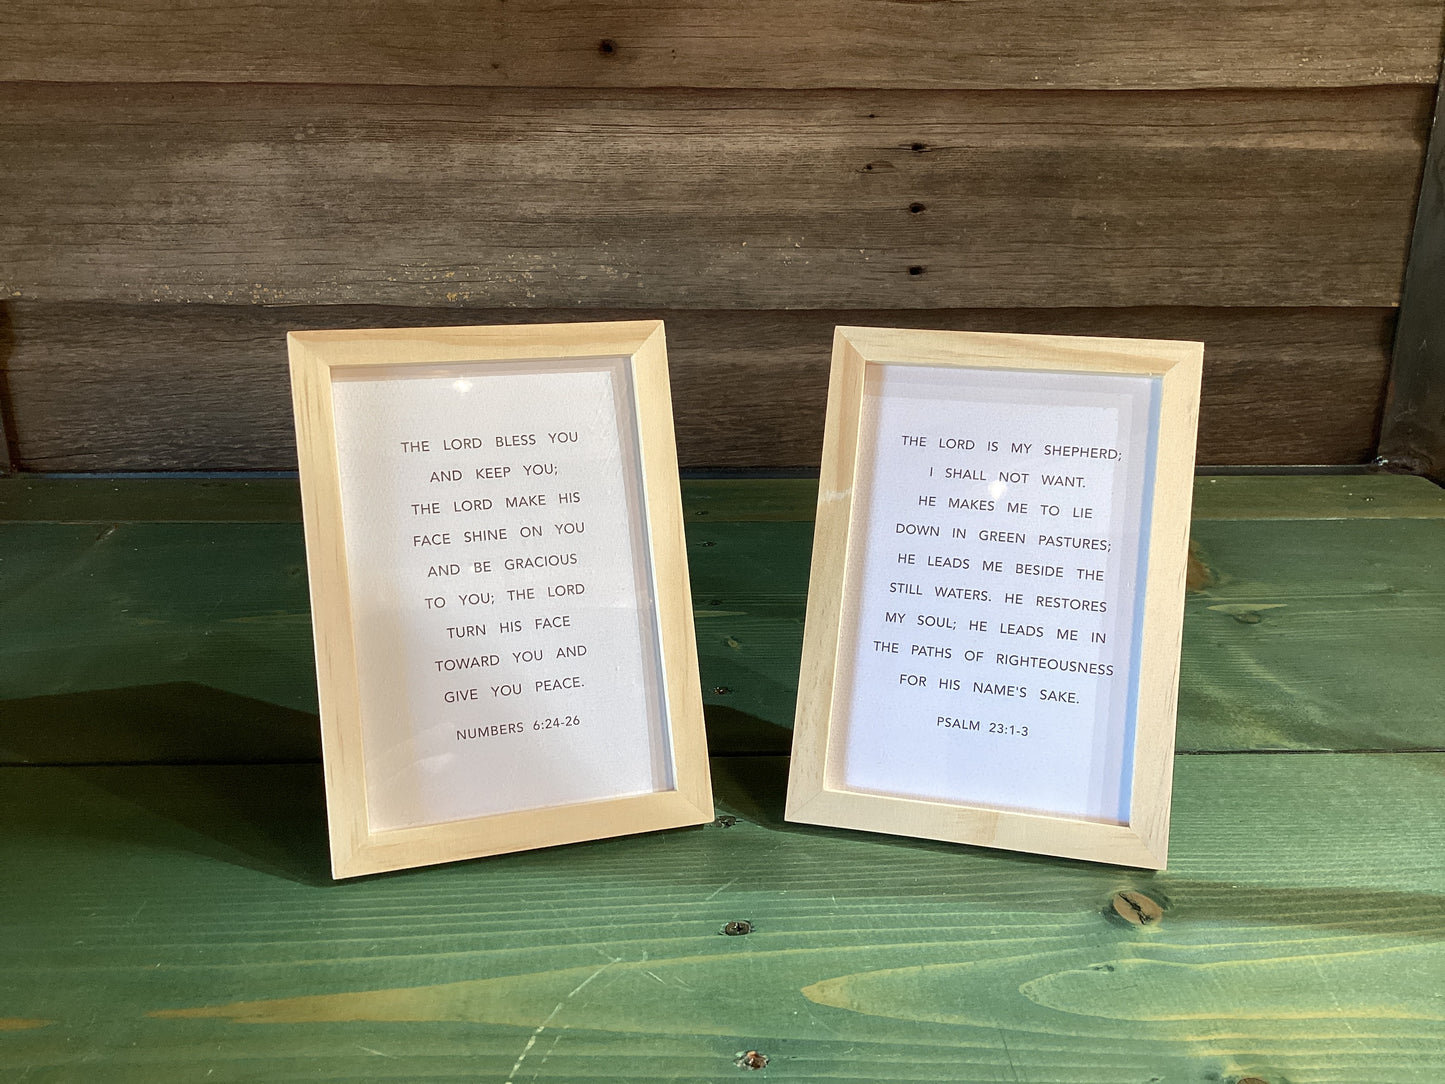 THE LORD BLESS YOU
AND KEEP YOU;
THE LORD MAKE HIS
FACE SHINE ON YOU
AND BE GRACIOUS
TO YOU; THE LORD
TURN HIS FACE
TOWARD YOU AND
GIVE YOU PEACE.
NUMBERS 6:24-26
THE LORD IS MY SHEPHERD;
I SHALL NOT WANT.
HE MAKES ME TO LIE
DOWN IN GREEN PASTURES;
HE LEADS ME BESIDE THE
STILL WATERS. HE RESTORES
MY SOUL; HE LEADS ME IN
THE PATHS OF RIGHTEOUSNESS
FOR HIS NAME'S SAKE.
PSALM 23:1-3